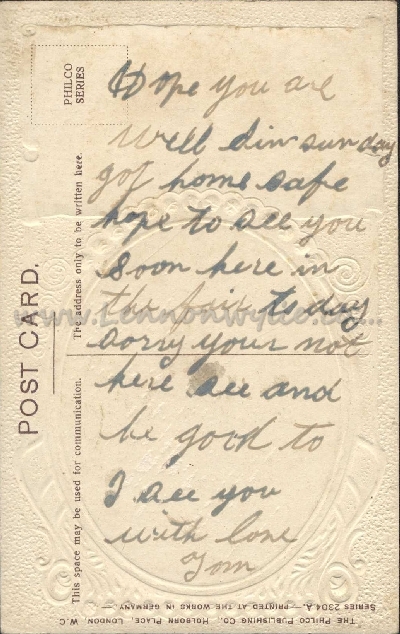 Hope you are
well din sunday
got home safe
hope to see you
soon here in
the fair today
sorry your not
here see and
be good to
I see you
with love
Tom
POST CARD.
PHILCO
SERIES
The address only to be written here.
This space may be used for communication.
THE PHILCO PUBLISHING CO. HOLBORN PLACE, LONDON, W.C.
SERIES 2304 A.—PRINTED AT THE WORKS IN GERMANY.—